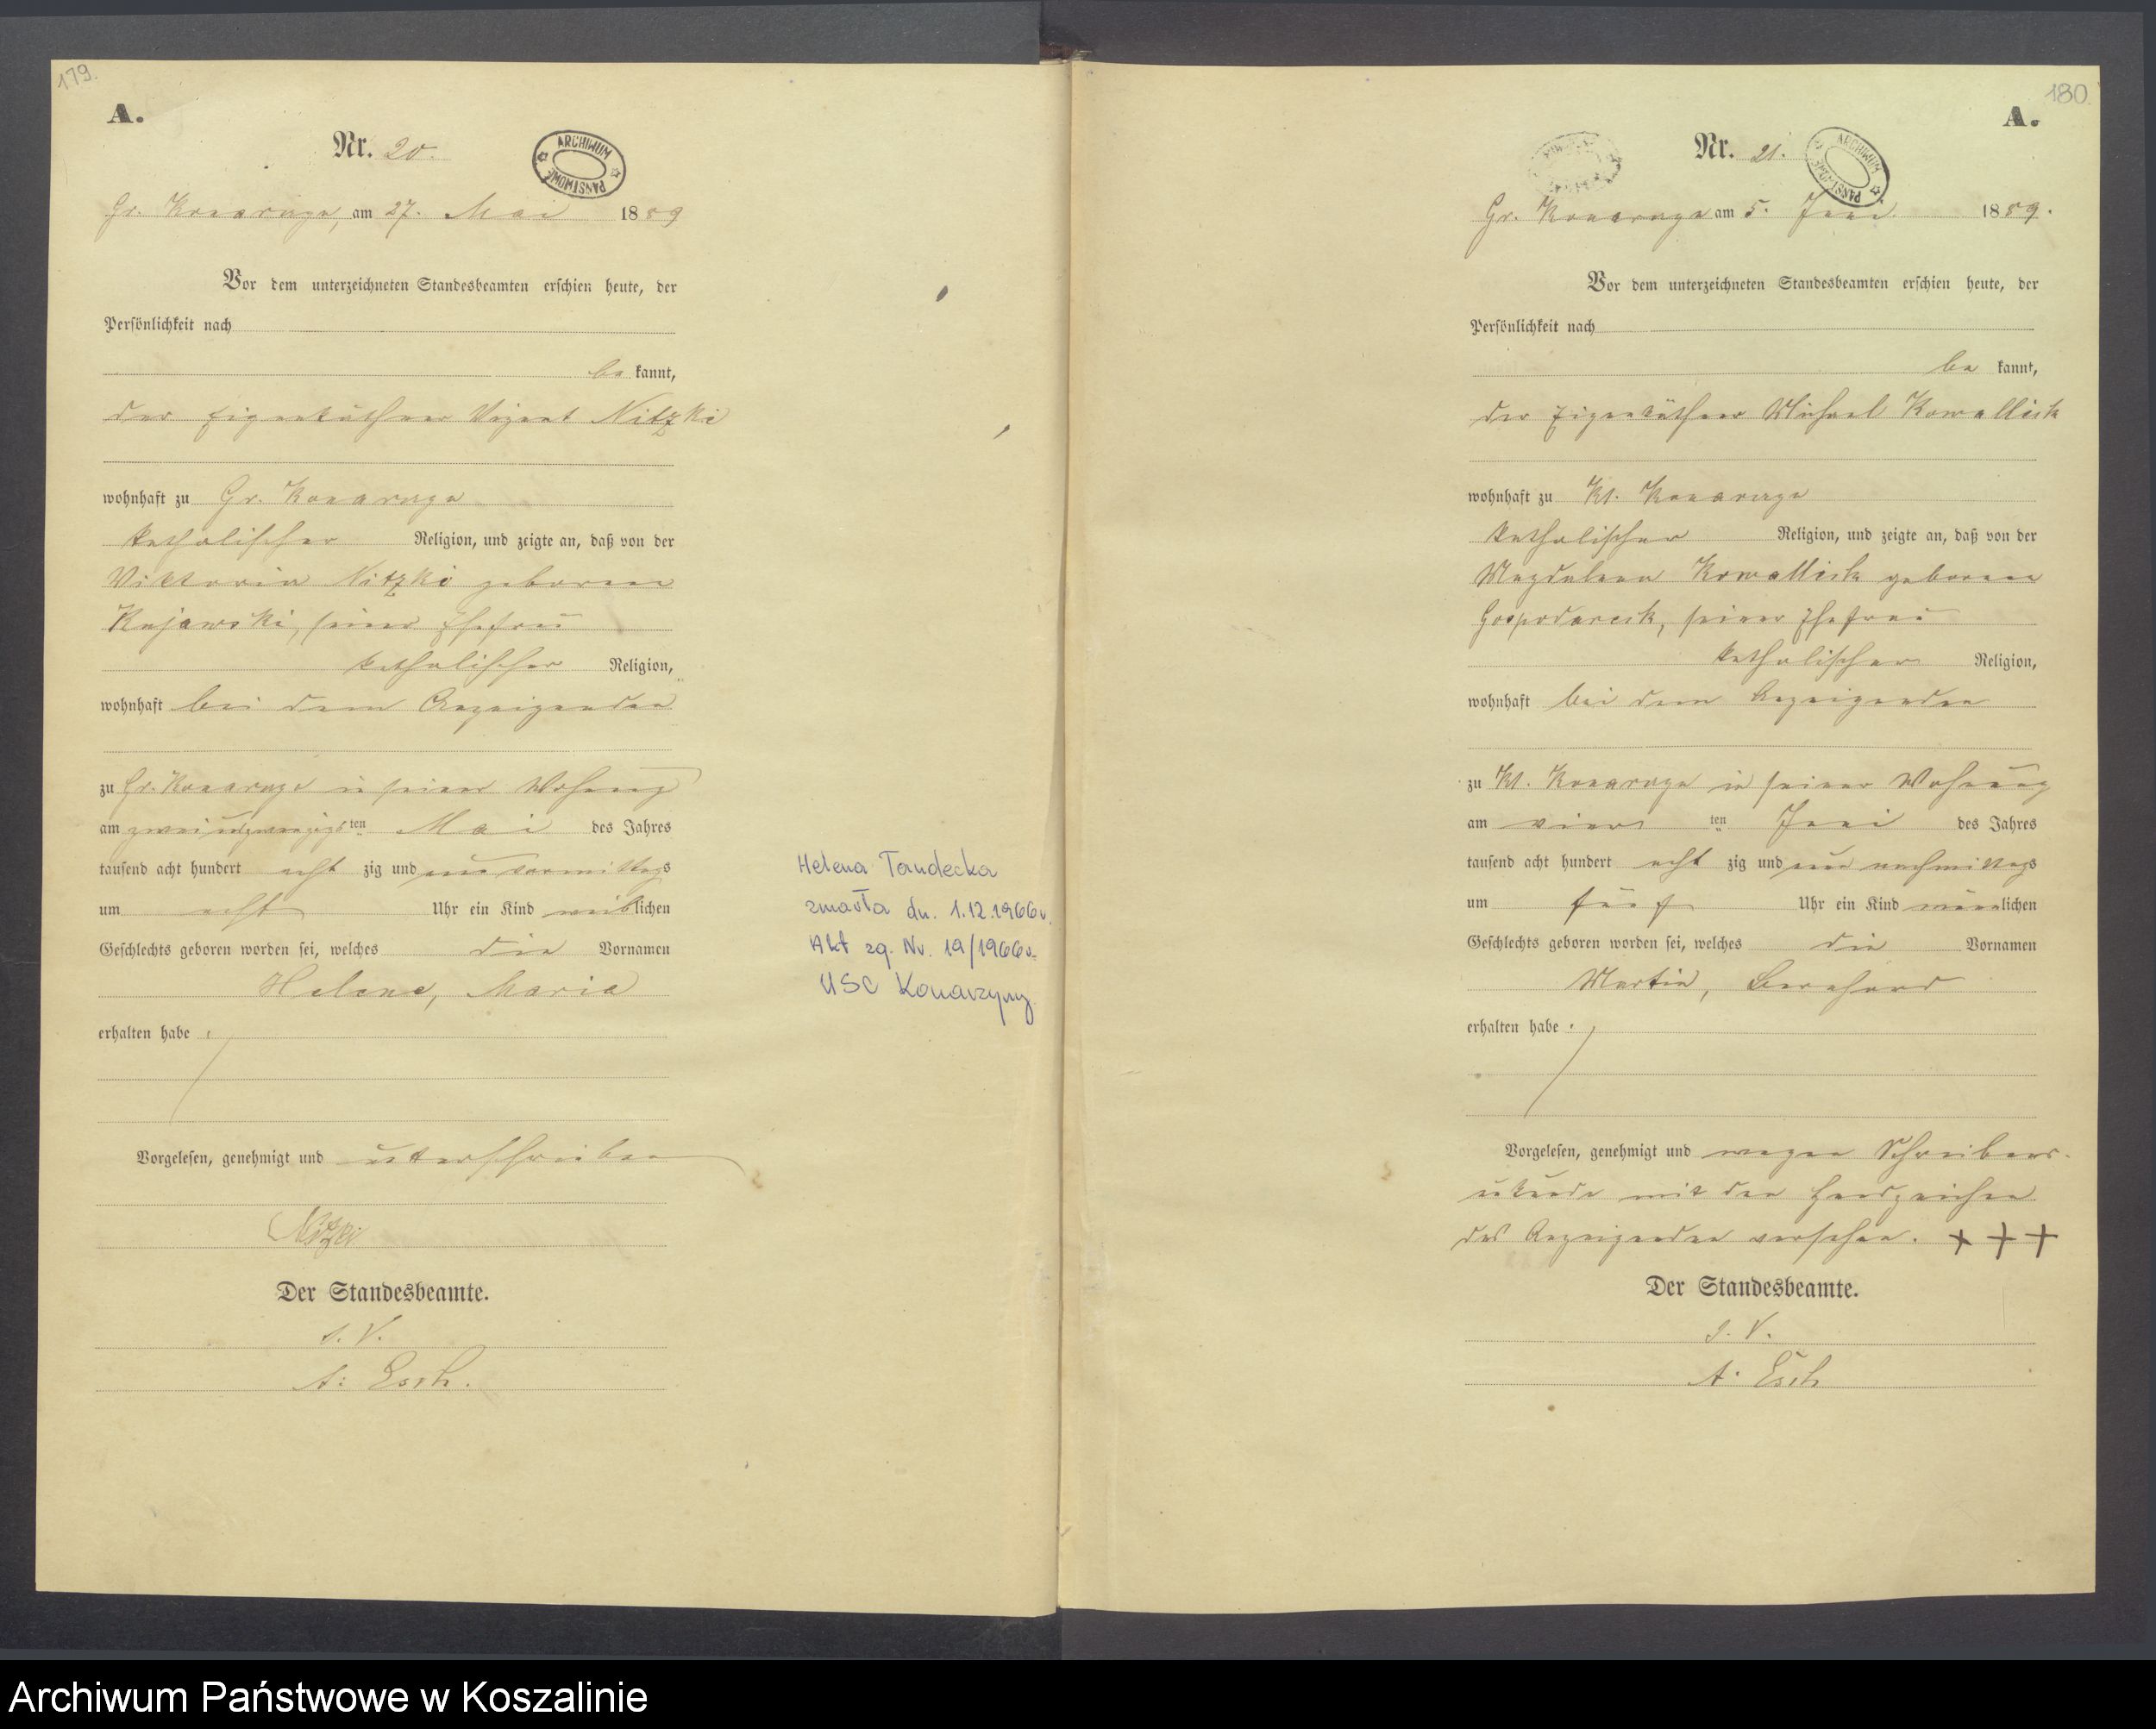 179.
A.
Nr. 20.
ARCHIWUM PAŃSTWOWE
Gr. Konarczyn, am 27. Mai 1889
Vor dem unterzeichneten Standesbeamten erschien heute, der
Persönlichkeit nach
be kannt,
der Eigenkäthner Vizent Nitzki
wohnhaft zu Gr. Konarczyn
katholischer Religion, und zeigte an, daß von der
Viktoria Nitzki geborene
Kujawski, seiner Ehefrau
katholischer Religion,
wohnhaft bei dem Anzeigenden
zu Gr. Konarczyn in seiner Wohnung
am zweiundzwanzigsten Mai des Jahres
tausend acht hundert acht zig und neun vormittags
um acht Uhr ein Kind weiblichen
Geschlechts geboren worden sei, welches die Vornamen
Helene, Maria
erhalten habe.
Vorgelesen, genehmigt und unterschrieben
Nitzki
Der Standesbeamte.
I. V.
A. Esch.
Helena Tandecka
zmarła dn. 1.12.1966r.
Akt zg. Nr. 19/1966r.
USC Konarzyny
180.
A.
Nr. 21.
ARCHIWUM PAŃSTWOWE
Gr. Konarczyn am 5. Juni 1889.
Vor dem unterzeichneten Standesbeamten erschien heute, der
Persönlichkeit nach
be kannt,
der Eigenkäthner Michael Kowallick
wohnhaft zu Kl. Konarczyn
katholischer Religion, und zeigte an, daß von der
Magdalena Kowallick geborene
Gospodareck, seiner Ehefrau
katholischer Religion,
wohnhaft bei dem Anzeigenden
zu Kl. Konarczyn in seiner Wohnung
am vierten Juni des Jahres
tausend acht hundert acht zig und neun nachmittags
um fünf Uhr ein Kind männlichen
Geschlechts geboren worden sei, welches die Vornamen
Martin, Bernhard
erhalten habe.
Vorgelesen, genehmigt und wegen Schreibens-
unkunde mit den Handzeichen
des Anzeigenden versehen. +++
Der Standesbeamte.
I. V.
A. Esch
Archiwum Państwowe w Koszalinie